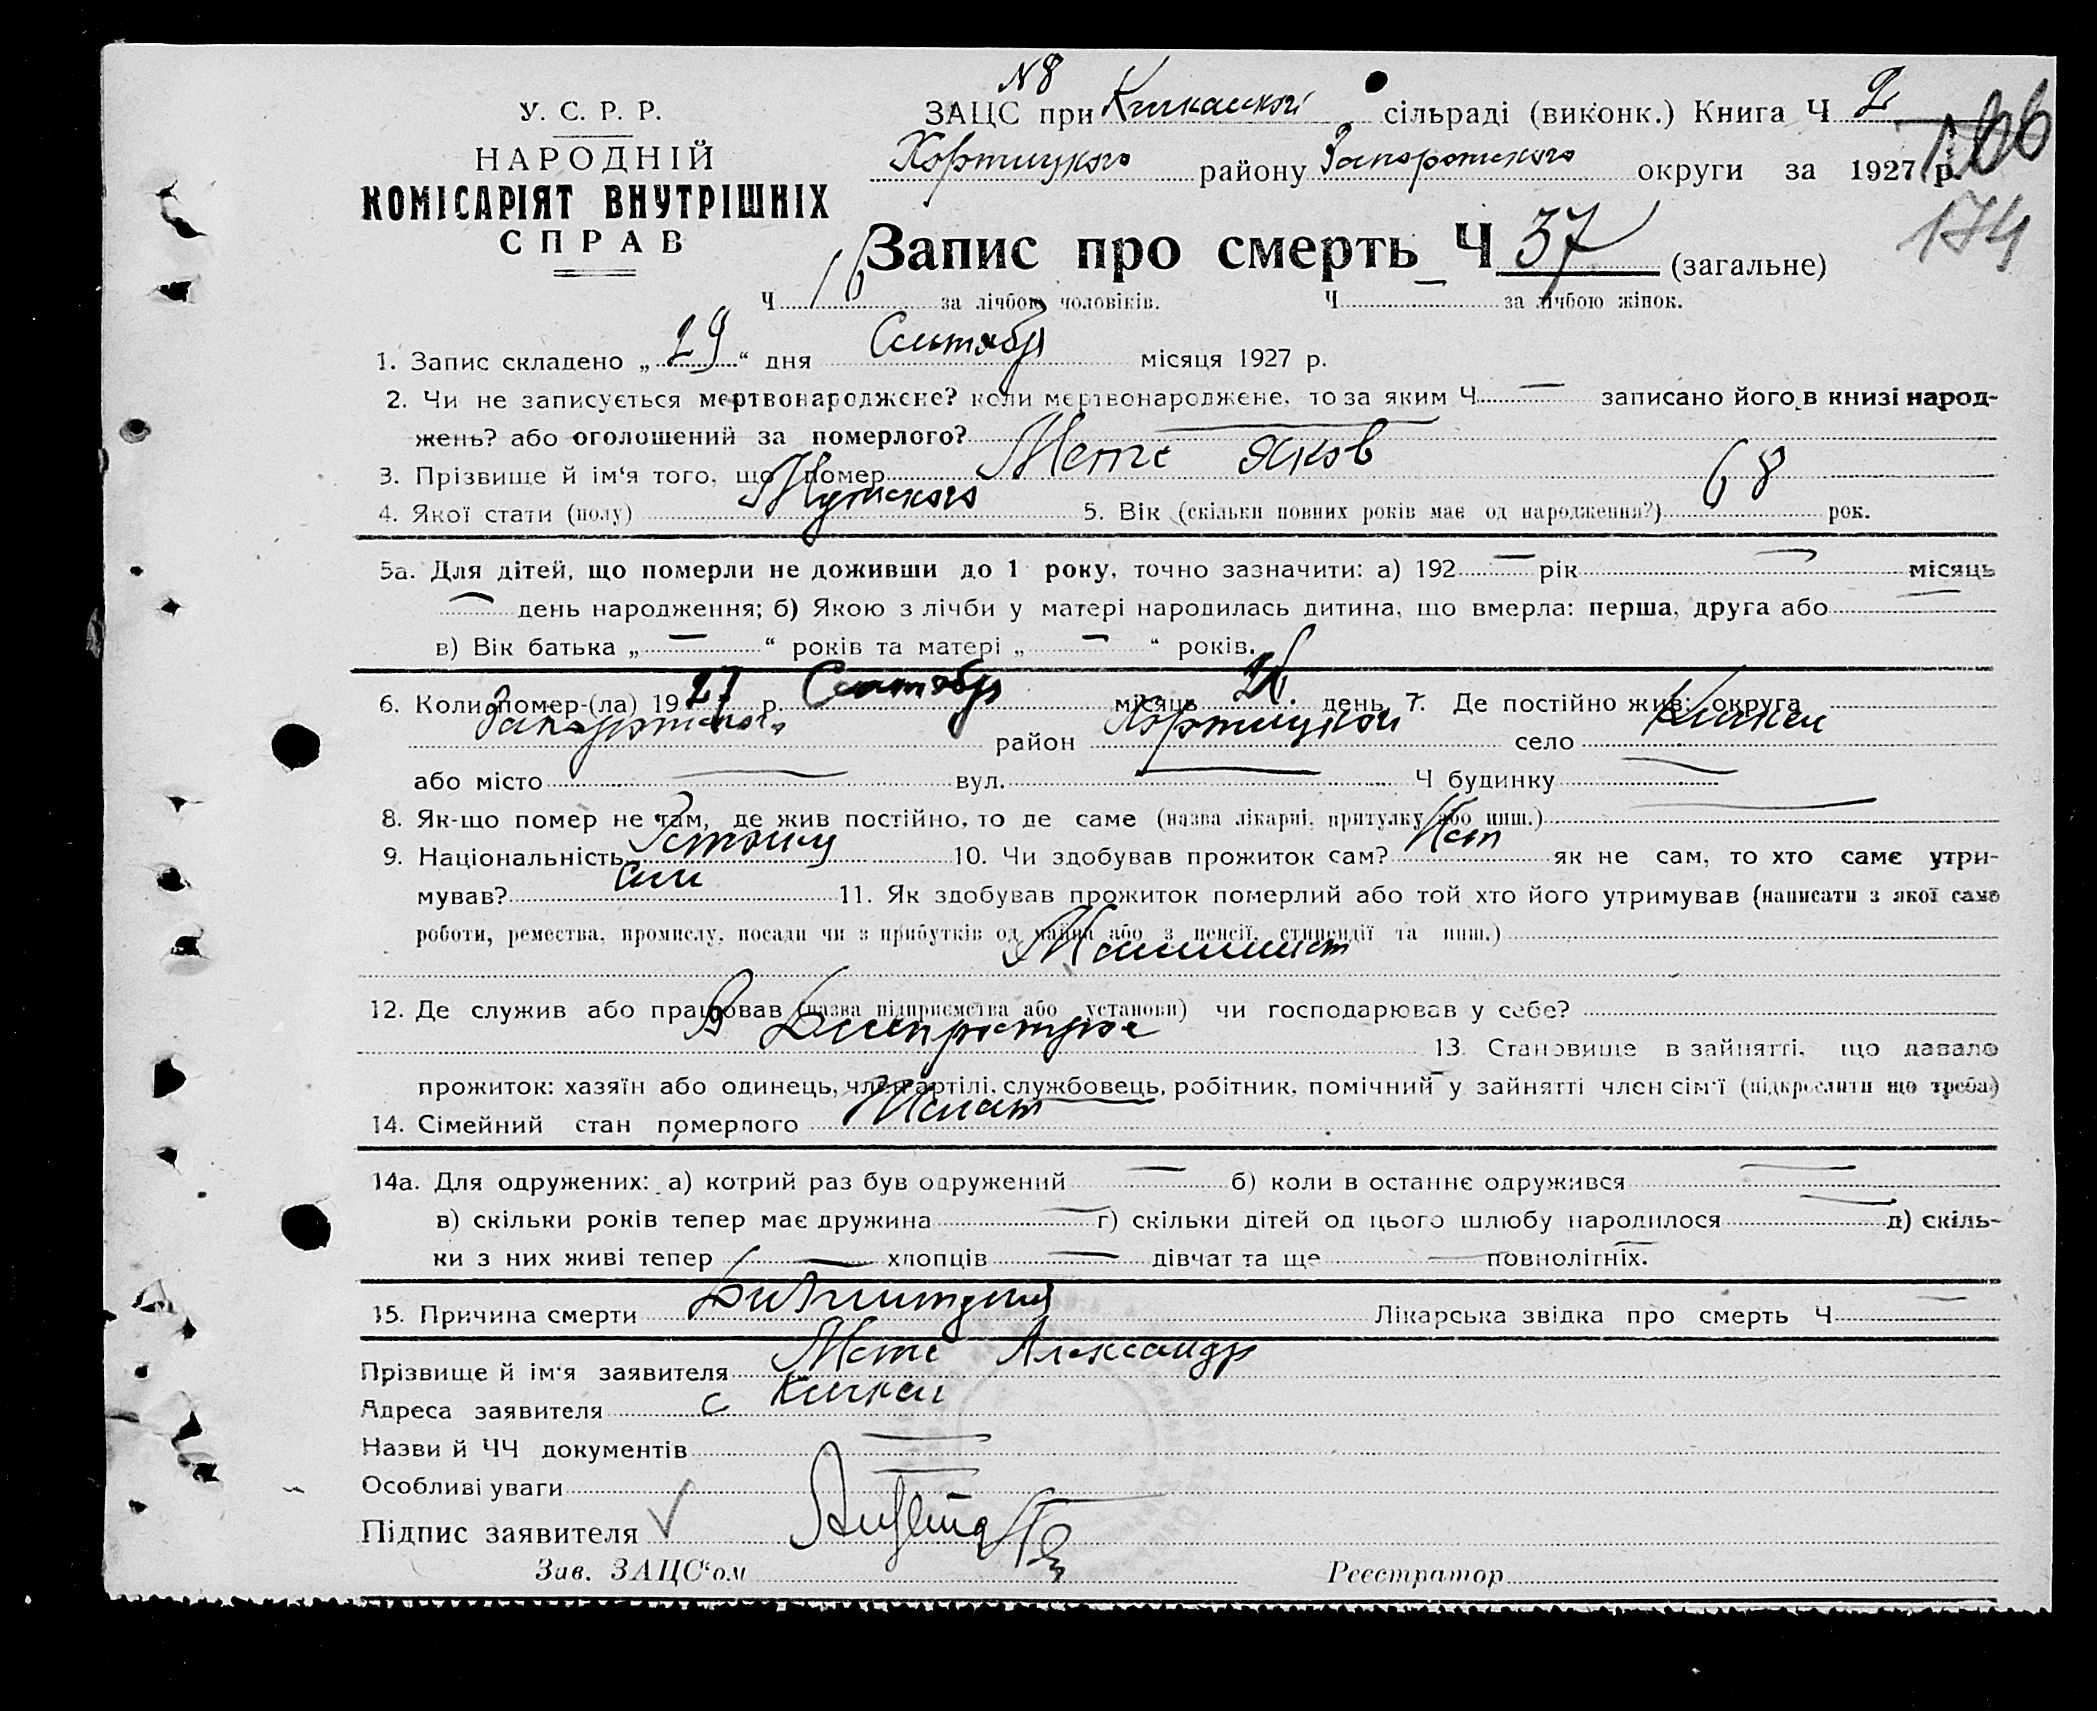 № 8
У. С. Р. Р.
ЗАЦС при Кичкаской сільраді (виконк.) Книга Ч 2
166
НАРОДНІЙ
Хортицкого району Запорожского округи за 1927 р.
КОМІСАРІЯТ ВНУТРІШНІХ
СПРАВ
174
Запис про смерть Ч 37 (загальне)
Ч 16 за лічбою чоловіків. Ч — за лічбою жінок.
1. Запис складено „ 29 “ дня Сентября місяця 1927 р.
2. Чи не записується мертвонароджене? коли мертвонароджене, то за яким Ч — записано його в книзі народ-
жень? або оголошений за померлого? —
3. Прізвище й ім‘я того, що помер Яков
4. Якої стати (полу) Мужского 5. Вік (скільки повних років має од народження?) 68 рок.
5а. Для дітей, що померли не доживши до 1 року, точно зазначити: а) 192 — рік — місяць
— день народження; б) Якою з лічби у матері народилась дитина, що вмерла: перша, друга або —
в) Вік батька „ — “ років та матері „ — “ років.
6. Коли помер-(ла) 1927 р. Сентября місяць день 7. Де постійно жив: округа
Запорожского район Хортицкой село Кичкас
або місто — вул. — Ч будинку —
8. Як-що помер не там, де жив постійно, то де саме (назва лікарні, притулку або инш.) —
9. Національність 10. Чи здобував прожиток сам? Нет як не сам, то хто саме утри-
мував? Сын 11. Як здобував прожиток померлий або той хто його утримував (написати з якої саме
роботи, ремества, промислу, посади чи з прибутків од майна або з пенсії, стипендії та инш.)
Машинист
12. Де служив або працював (назва підприємства або установи) чи господарював у себе?
В Днепрострое
13. Становище в зайнятті, що давало
прожиток: хазяїн або одинець, член артілі, службовець, робітник, помічний у зайнятті член сім‘ї (підкреслити що треба)
14. Сімейний стан померлого Женат
14а. Для одружених: а) котрий раз був одружений — б) коли в останнє одружився —
в) скільки років тепер має дружина — г) скільки дітей од цього шлюбу народилося — д) скіль-
ки з них живі тепер — хлопців — дівчат та ще — повнолітніх.
15. Причина смерти Лікарська звідка про смерть Ч —
Прізвище й ім‘я заявителя Александр
Адреса заявителя с Кичкас
Назви й ЧЧ документів —
Особливі уваги —
Підпис заявителя
Зав. ЗАЦС‘ом Реєстратор